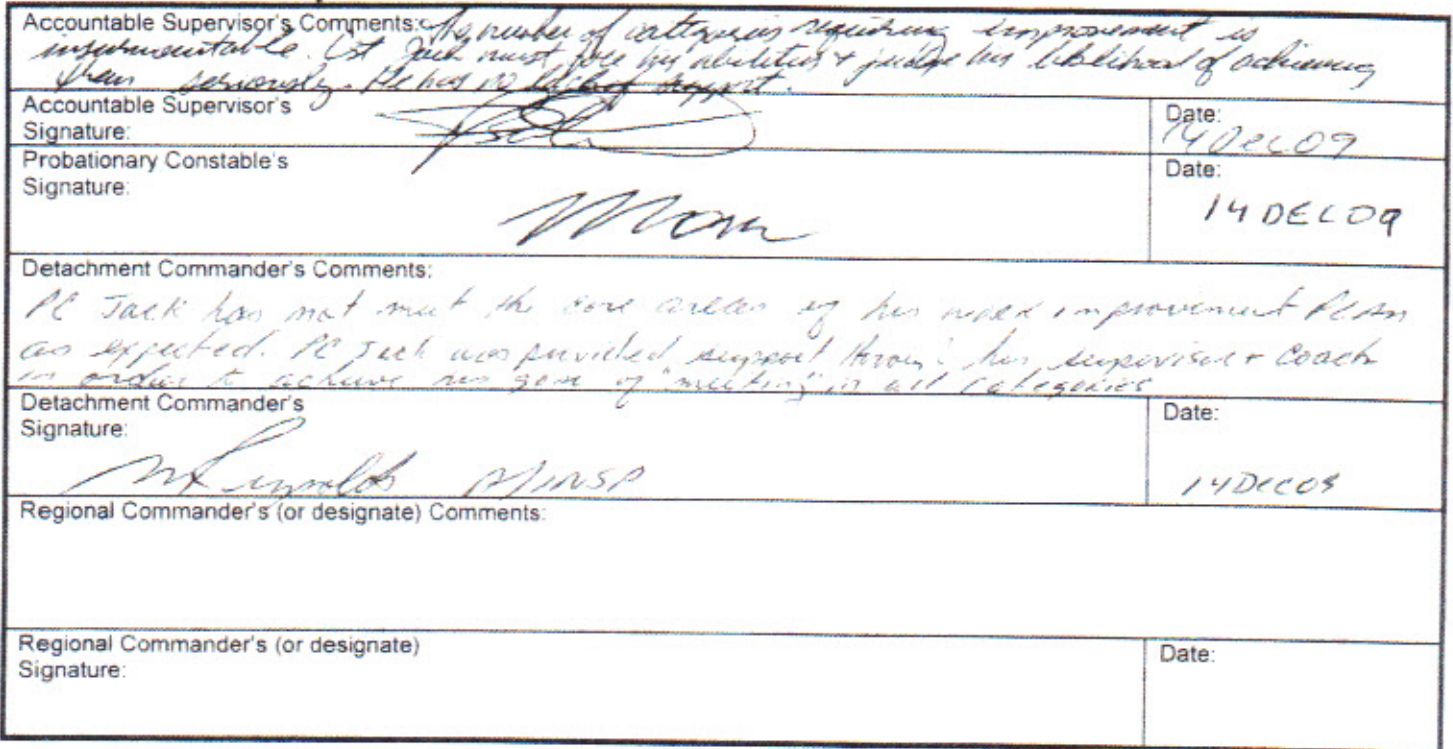 Accountable Supervisor's Comments: The number of categories requiring improvement is
insurmountable. Cst Jack must see his abilities + judge his likelihood of achieving
them seriously. He has no lack of support.
Accountable Supervisor's
Signature:
Date:
14Dec09
Probationary Constable's
Signature:
Date:
14DEC09
Detachment Commander's Comments:
PC Jack has not meet the core areas of his work improvement Plan
as expected. PC Jack was provided support through his supervisor + Coach
in order to achieve his goal of "meeting" in all categories
Detachment Commander's
Signature:
Date:
M Reynolds A/INSP
14Dec09
Regional Commander's (or designate) Comments:
Regional Commander's (or designate)
Signature:
Date: